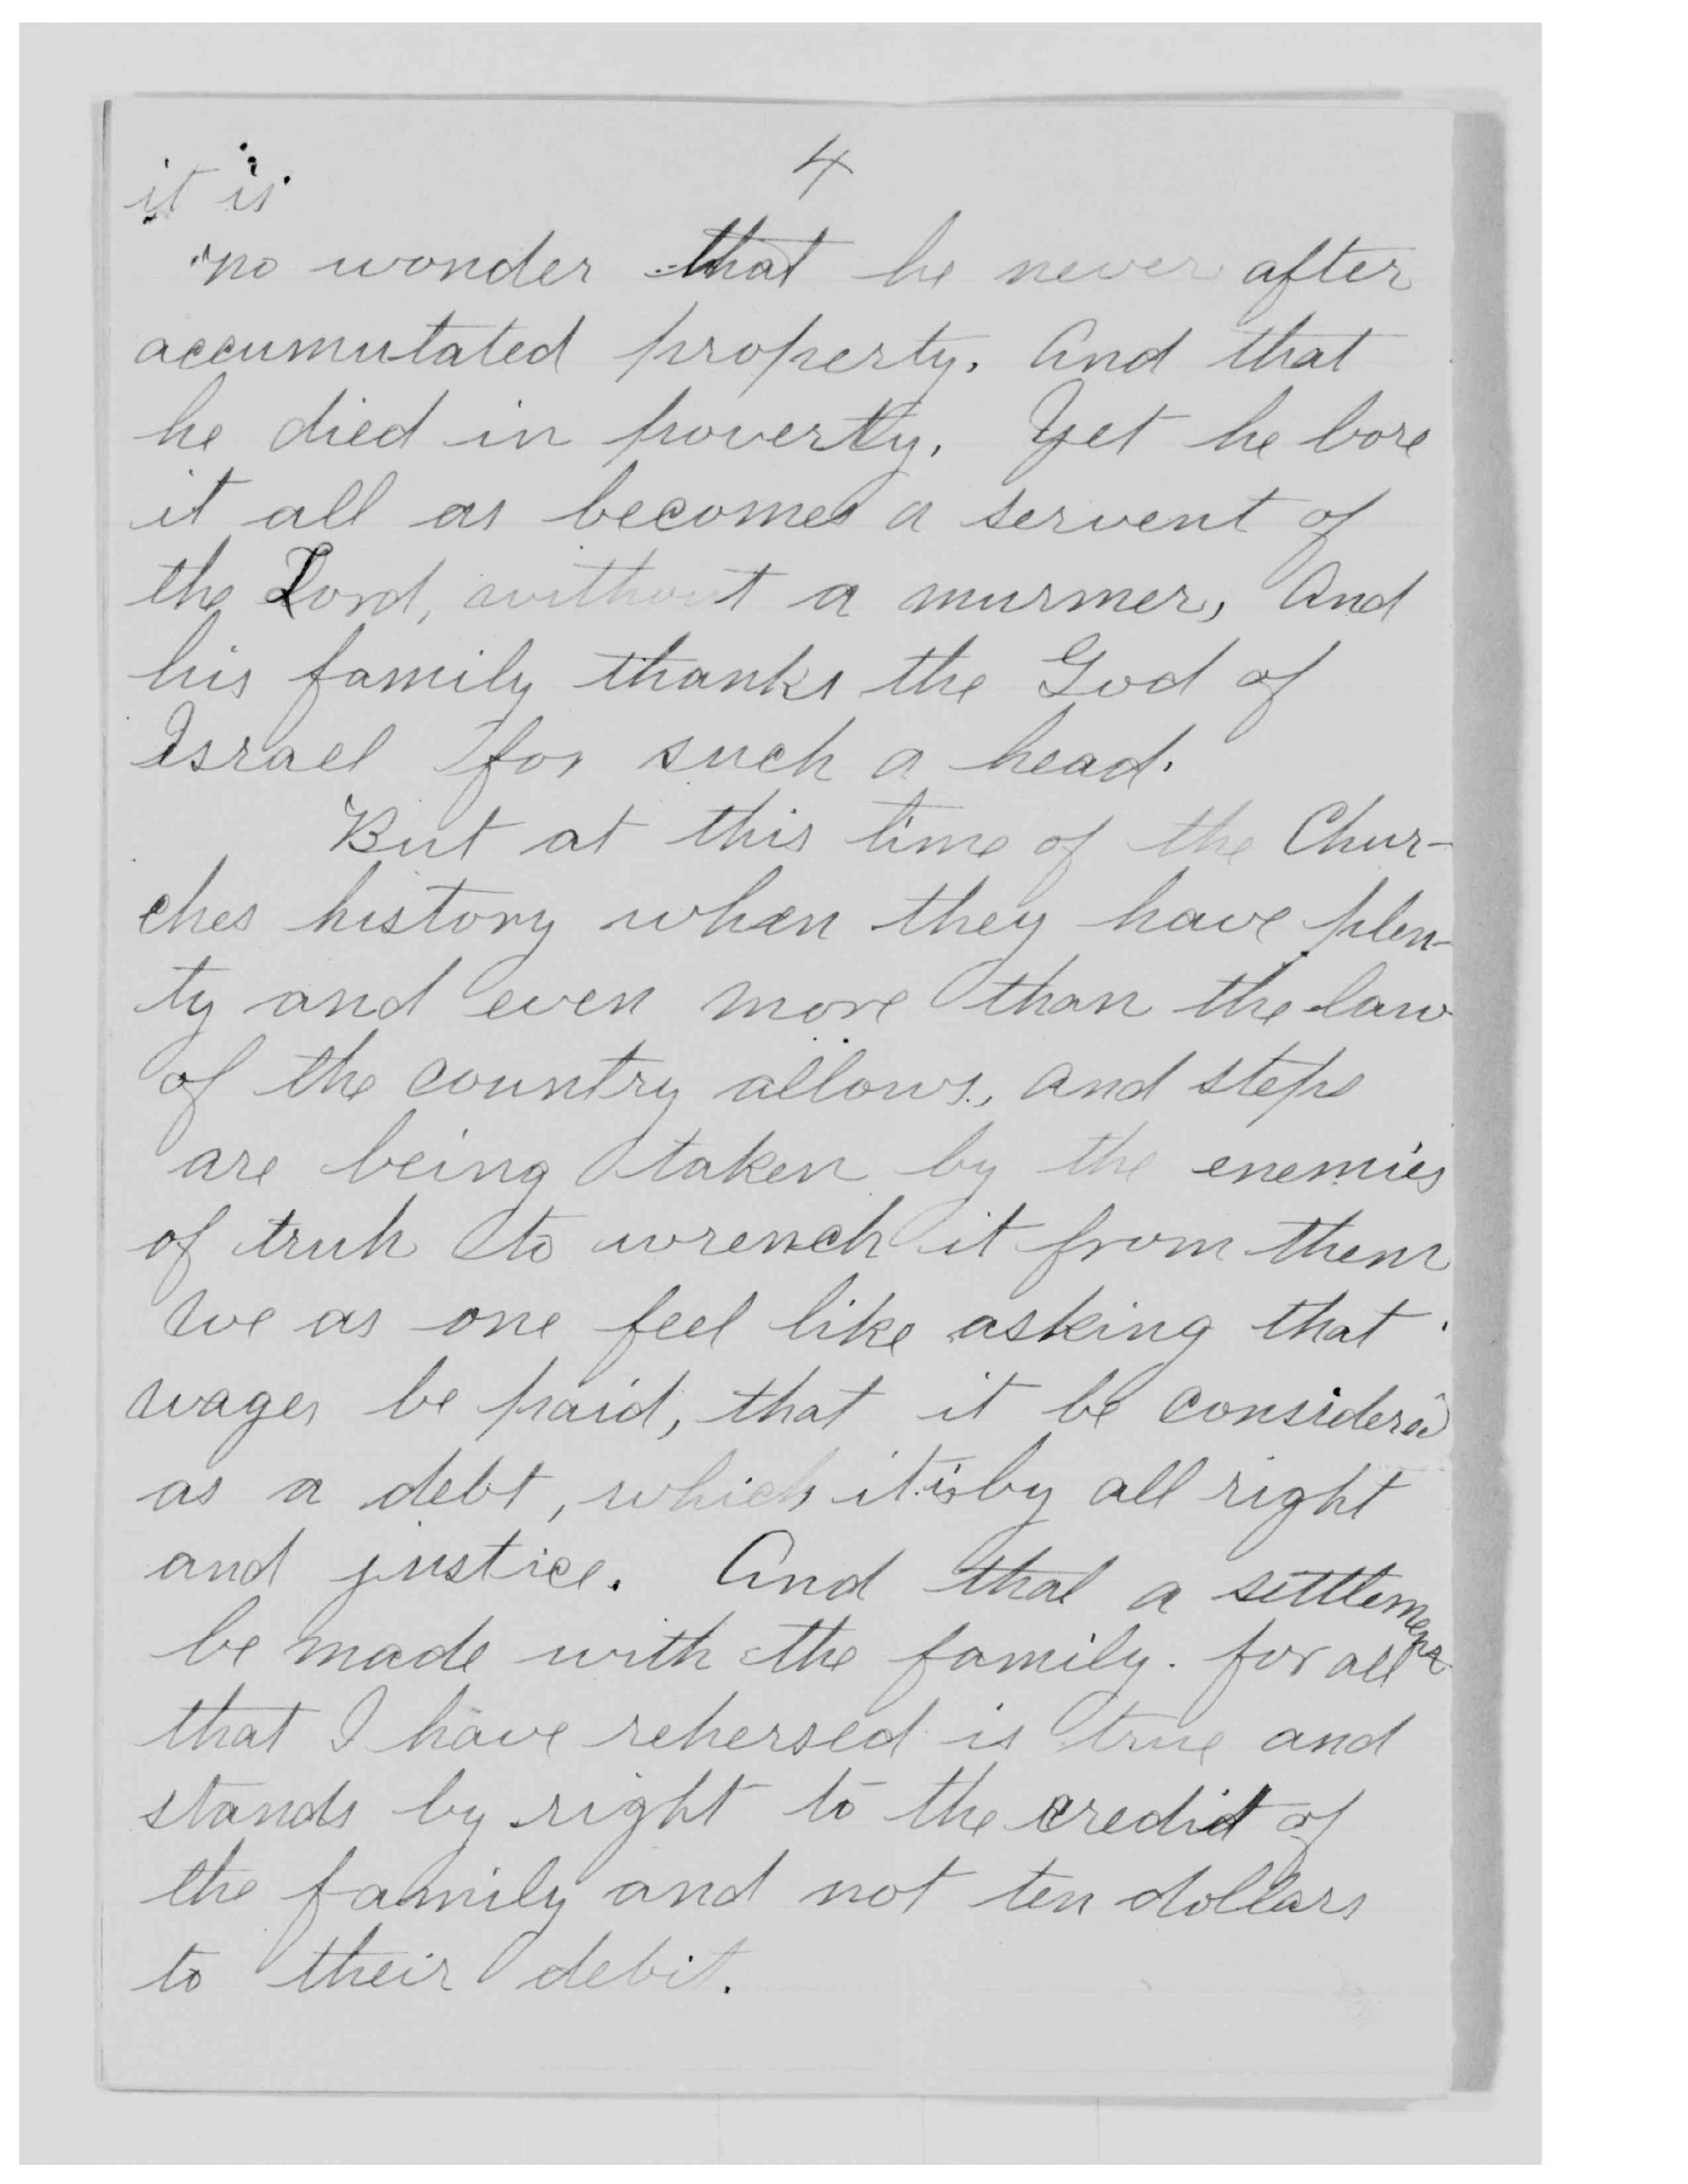 4
it is
no wonder that he never after
accumutated property. And that
he died in poverty. Yet he bore
it all as becomes a servent of
the Lord, without a murmer, And
his family thanks the God of
Israel for such a head.
But at this time of the Chur-
ches history when they have plen-
ty and even more than the law
of the country allows, and steps
are being taken by the enemies
of truh to wrench it from them
we as one feel like asking that
wages be paid, that it be considered
as a debt, which it is by all right
and justice. And that a settlement
be made with the family. for all
that I have rehersed is true and
stands by right to the credit of
the family and not ten dollars
to their debit.